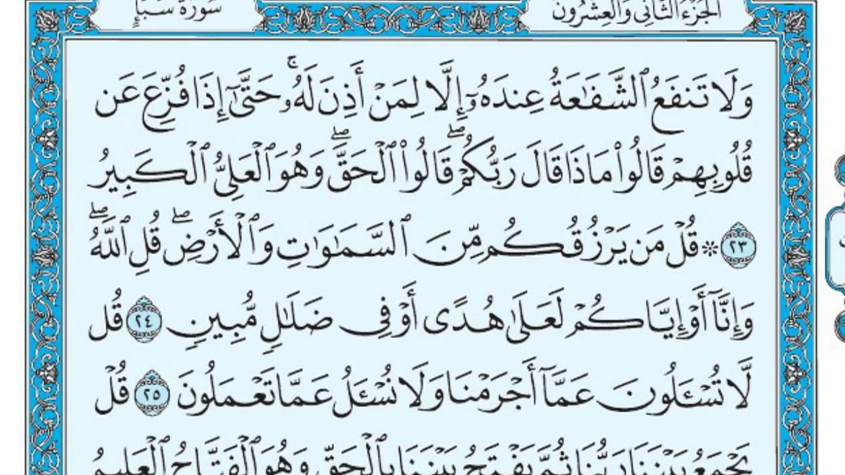 الجزء الثاني والعشرون سورة سبإ
وَلَا تَنفَعُ ٱلشَّفَٰعَةُ عِندَهُۥٓ إِلَّا لِمَنْ أَذِنَ لَهُۥۚ حَتَّىٰٓ إِذَا فُزِّعَ عَن
قُلُوبِهِمْ قَالُوا۟ مَاذَا قَالَ رَبُّكُمْۖ قَالُوا۟ ٱلْحَقَّۖ وَهُوَ ٱلْعَلِىُّ ٱلْكَبِيرُ
٢٣ ۞ قُلْ مَن يَرْزُقُكُم مِّنَ ٱلسَّمَٰوَٰتِ وَٱلْأَرْضِۖ قُلِ ٱللَّهُۖ
وَإِنَّآ أَوْ إِيَّاكُمْ لَعَلَىٰ هُدًى أَوْ فِى ضَلَٰلٍ مُّبِينٍ ٢٤ قُل
لَّا تُسْـَٔلُونَ عَمَّآ أَجْرَمْنَا وَلَا نُسْـَٔلُ عَمَّا تَعْمَلُونَ ٢٥ قُلْ
يَجْمَعُ بَيْنَنَا رَبُّنَا ثُمَّ يَفْتَحُ بَيْنَنَا بِٱلْحَقِّ وَهُوَ ٱلْفَتَّاحُ ٱلْعَلِيمُ